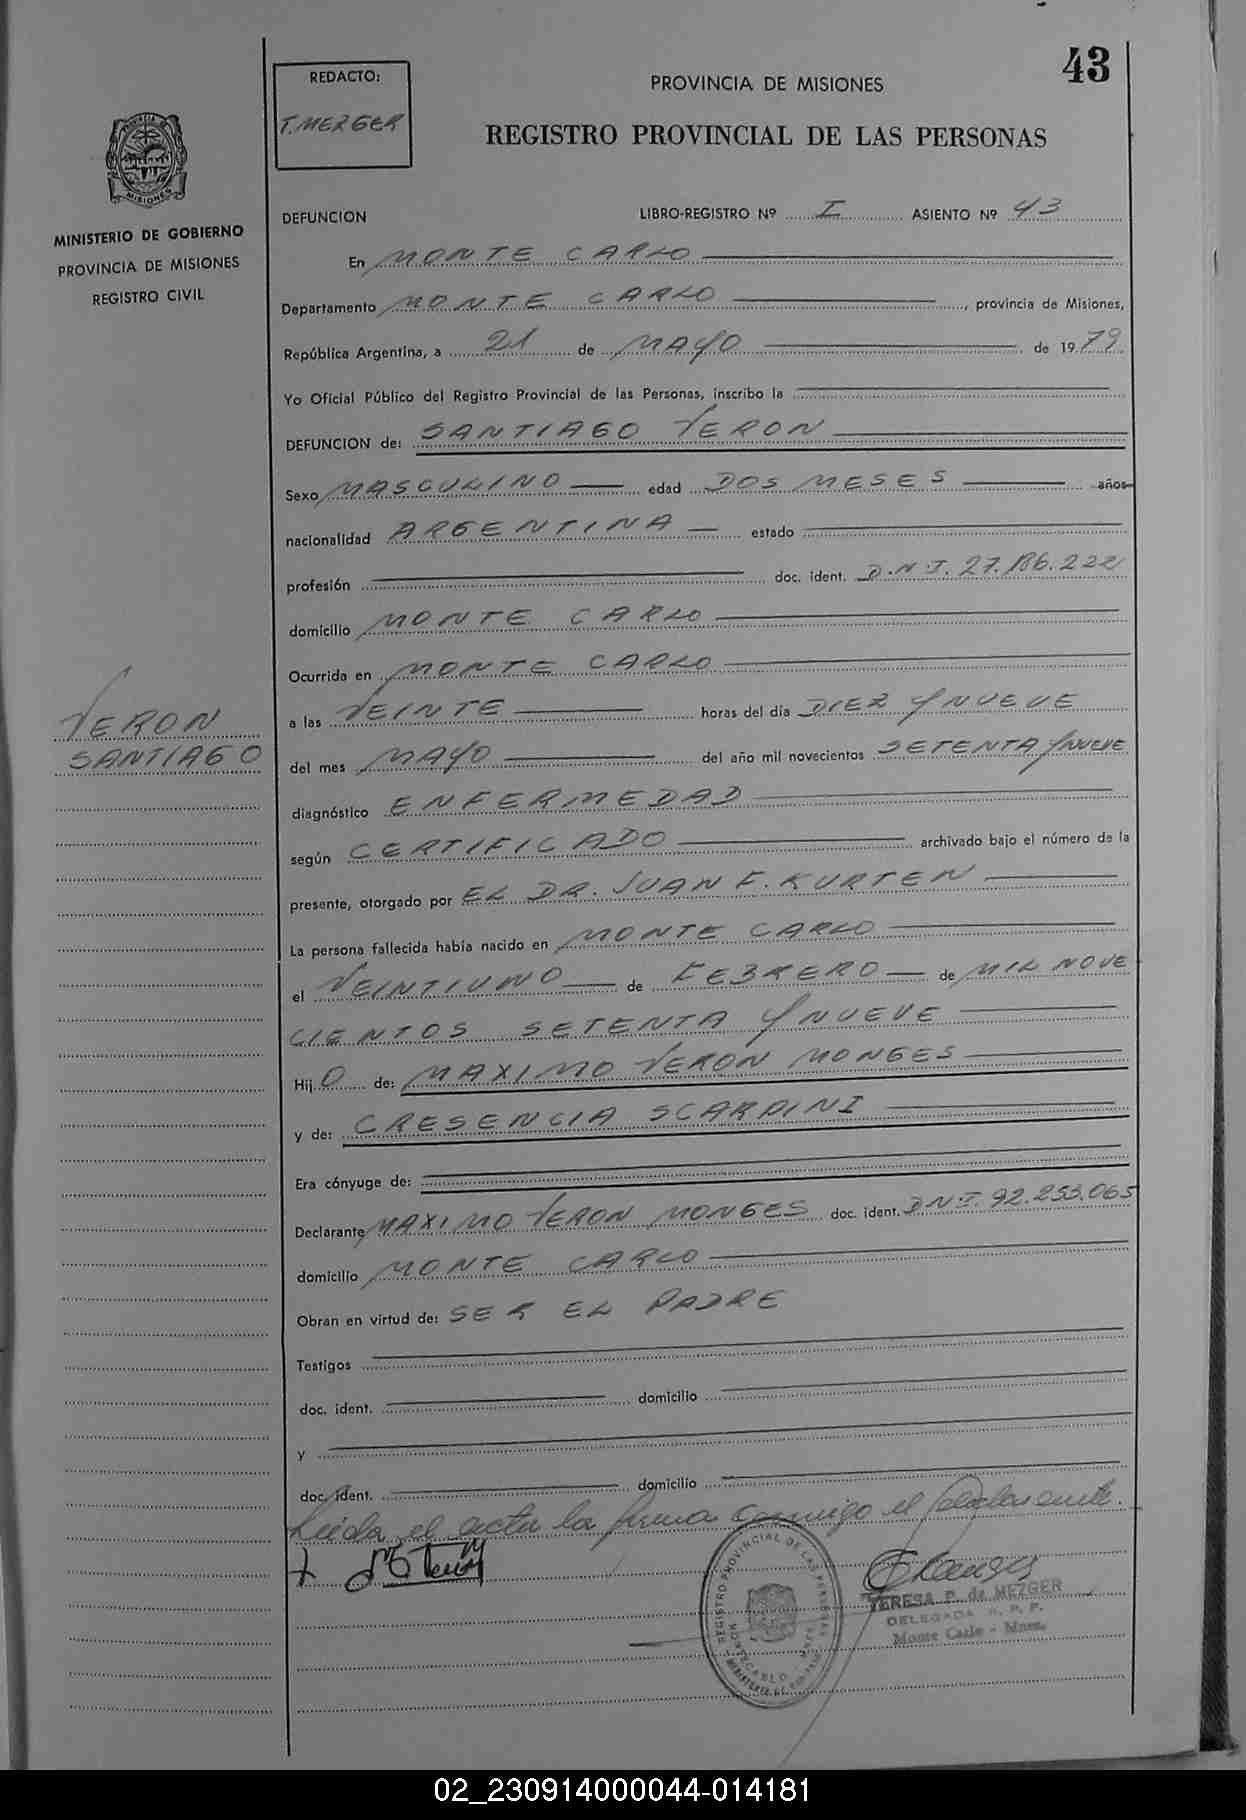 43
REDACTO:
T. MEZGER
PROVINCIA DE MISIONES
REGISTRO PROVINCIAL DE LAS PERSONAS
MINISTERIO DE GOBIERNO
PROVINCIA DE MISIONES
REGISTRO CIVIL
DEFUNCION LIBRO-REGISTRO Nº I ASIENTO Nº 43
En MONTE CARLO
Departamento MONTE CARLO, provincia de Misiones,
República Argentina, a 21 de MAYO de 1979
Yo Oficial Público del Registro Provincial de las Personas, inscribo la
DEFUNCION de: SANTIAGO VERON
Sexo MASCULINO edad DOS MESES años
nacionalidad ARGENTINA estado
profesión doc. ident. D.N.I. 27.186.222
domicilio MONTE CARLO
Ocurrida en MONTE CARLO
VERON
SANTIAGO
a las VEINTE horas del día DIEZ Y NUEVE
del mes MAYO del año mil novecientos SETENTA Y NUEVE
diagnóstico ENFERMEDAD
según CERTIFICADO archivado bajo el número de la
presente, otorgado por EL DR. JUAN F. KURTEN
La persona fallecida había nacido en MONTE CARLO
el VEINTIUNO de FEBRERO de MIL NOVE
CIENTOS SETENTA Y NUEVE
Hij O de: MAXIMO VERON MONGES
y de: CRESENCIA SCARPINI
Era cónyuge de:
Declarante MAXIMO VERON MONGES doc. ident. DNI. 92.253.065
domicilio MONTE CARLO
Obran en virtud de: SER EL PADRE
Testigos
doc. ident. domicilio
y
doc. ident. domicilio
Leida el acta la firma conmigo el declarante.
REGISTRO PROVINCIAL DE LAS PERSONAS
MONTECARLO
TERESA P. de MEZGER
DELEGADA R. P. P.
Monte Carlo - Mnes.
02_230914000044-014181